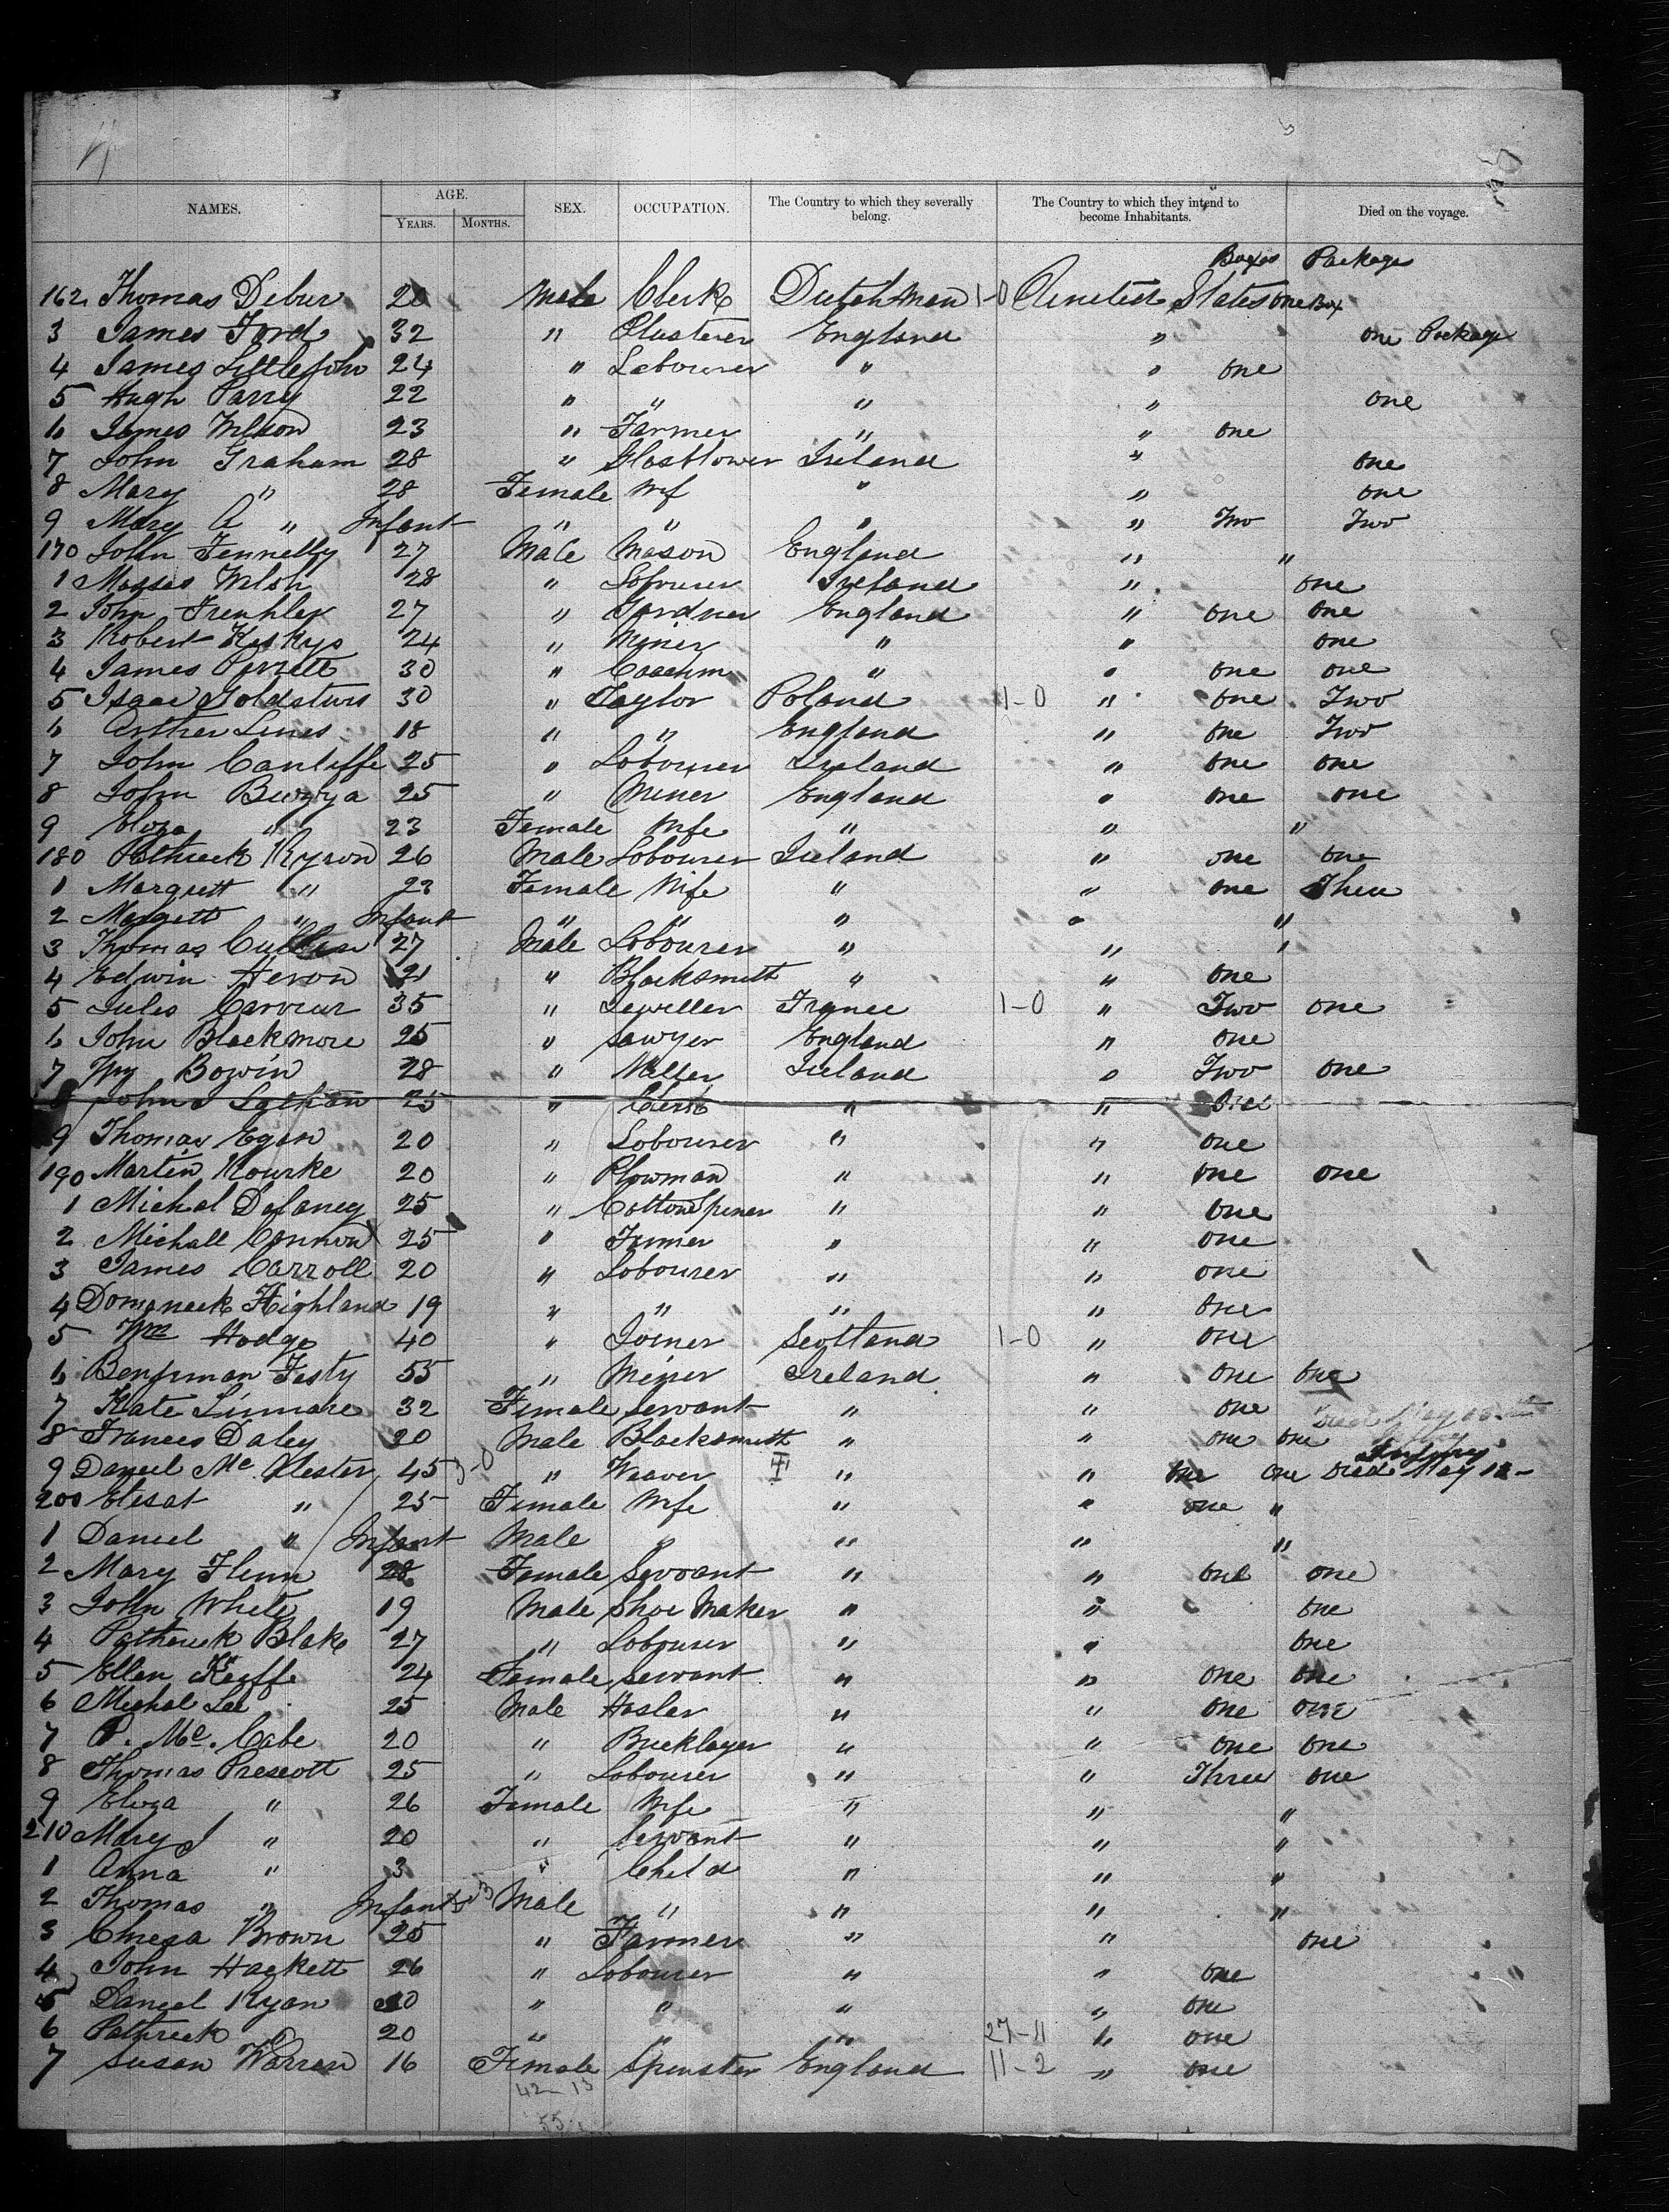 NAMES. AGE. YEARS. MONTHS. SEX. OCCUPATION. The Country to which they severally belong. The Country to which they intend to become Inhabitants. Died on the voyage.
Boxes Packages
162 Thomas Debur 20 Male Clerk Dutchman 1-0 United States One Box
3 James Ford 32 " Plusterer England " One Package
4 James Littlejohn 24 " Labourer " " One
5 Hugh Parry 22 " " " " One
6 James Wilson 23 " Farmer " " One
7 John Graham 28 " Glasblower Ireland " One
8 Mary " 28 Female Wif " " One
9 Mary A " Infant " " " " Two Two
170 John Fennelly 27 Male Mason England " "
1 Welsh 28 " Labourer Ireland " One
2 John 27 " Gardner England " One One
3 Robert 24 " Miner " " One
4 James Perrett 30 " " " One One
5 Isaac 30 " Taylor Poland 1-0 " One Two
6 Arther Lines 18 " " England " One Two
7 John Canliffe 25 " Labourer Ireland " One One
8 John 25 " Miner England " One One
9 Eliza " 23 Female Wife " " "
180 Pathreck Kyron 26 Male Labourer Ireland " One One
1 Margrett " 23 Female Wife " " One Three
2 Margett " Infant " " " " "
3 Thomas Cullen 27 Male Labourer " " "
4 Edwin Heron 21 " Blacksmith " " One
5 Jules 35 " Jeweller France 1-0 " Two One
6 John Blackmore 25 " Sawyer England " One
7 Wm Bowin 28 " Miller Ireland " Two One
8 John 25 " Clerk " "
9 Thomas Egan 20 " Labourer " " One
190 Martin Rourke 20 " Plowman " " One One
1 Michal Delaney 25 " Cotton Spiner " " One
2 Michall Connon 25 " Farmer " " One
3 James Carroll 20 " Labourer " " One
4 Domaneck Highland 19 " " " " One
5 Wm Hodge 40 " Joiner Scotland 1-0 " One
6 Benjiman Festy 55 " Miner Ireland " One One
7 Kate 32 Female Servant " " One
8 Frances Daley 20 Male Blacksmith " " One One
9 Daniel Mc Hester 45 3-0 " Weaver " " One One Died May 12 -
200 Elisat " 25 Female Wife " " One "
1 Daniel " Infant Male " " " "
2 Mary Flinn 28 Female Servant " " One One
3 John White 19 Male Shoe Maker " " One
4 Patherick Blake 27 " Labourer " " One
5 Ellen Keiffe 24 Female Servant " " One One
6 Michal Lee 25 Male Hosler " " One One
7 P. Mc. Cabe 20 " Bricklayer " " One One
8 Thomas Prescott 25 " Labourer " " Three One
9 Eliza " 26 Female Wife " " "
210 Mary J " 20 " Servant " " "
1 Anna " 3 " Child " " "
2 Thomas " Infant Male " " " "
3 Brown 25 " Farmer " " One
4 John Hackett 26 " Labourer " " One
5 Daniel Ryan 20 " " " " One
6 Pathreck " 20 " " " 27-11 " One
7 Susan Warren 16 Female Spinster England 11-2 " One
42-13
55